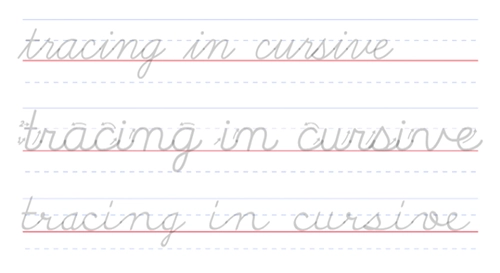 tracing in cursive
tracing in cursive
tracing in cursive